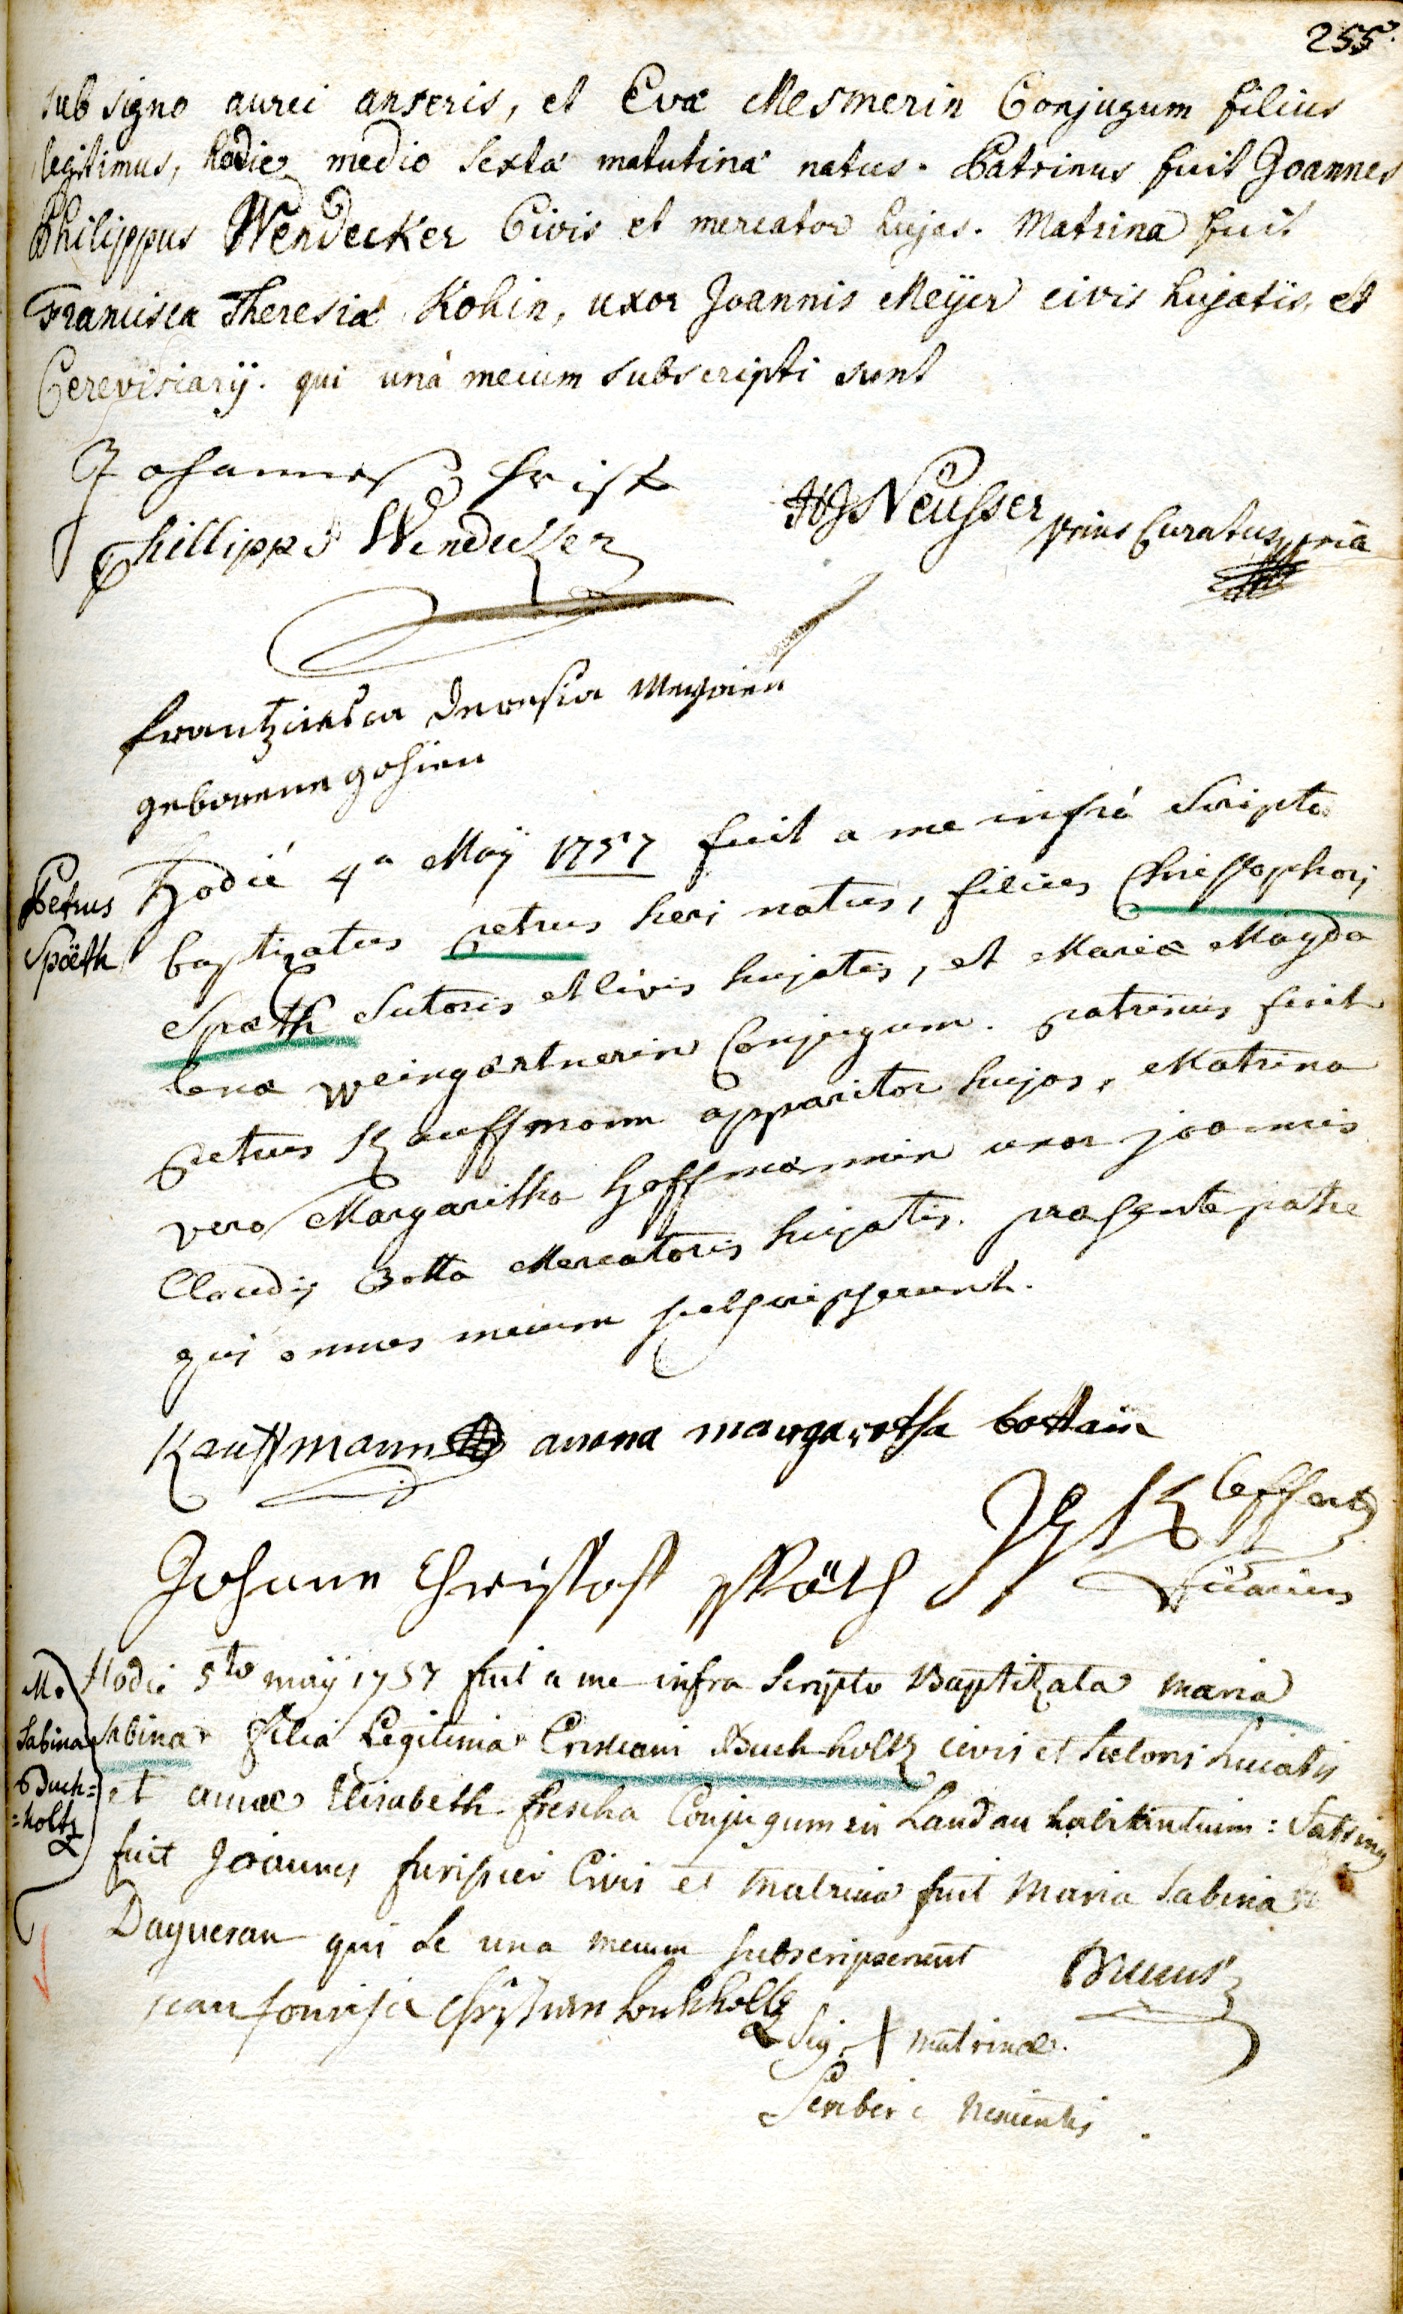 255.
sub signo aurei anseris, et Evæ Mesmerin Conjugum filius
legitimus, hodie medio sexta matutina natus. Patrinus fuit Joannes
Philippus Wendecker Civis et mercator hujas. Matrina fuit
Francisca Theresia Kohin, uxor Joannis Meÿer civis hujatis, et
Cerevisiarÿ. qui unà mecum subscripti sunt
Johannes
Phillipps Wendecker
Neusser prius Curatus mpria
frantziskca Deresia Meyerien
geborene gohien
Petrus
Späth
Hodiè 4a Maÿ 1757 fuit a me infrà Scripto
baptizatus petrus heri natus, filius Christophorj
Spæth Sutoris et Civis hujatis, et Mariæ Magda
lenæ Weingærtnerin Conjugum. patrinus fuit
petrus Kauffmann apparitor hujas, Matrina
vero Margaritha Hoffmannin uxor joannis
Claudij Botta Mercatoris hujatis. præsente patre
qui omnes mecum subscripserunt.
Kauffmann anna margaretha bottain
Johann Christoff Späth
Vicarius
M.
Sabina
Buch=
=holtz
Hodie 5to maÿ 1757 fuit a me infra Scripto Baptizata maria
sabina filia Legitima Cristiani Buchholtz civis et Sutoris huiatis
et annæ Elisabeth frescha Conjugum in Landau habitantium: Patrinus
fuit Joannes furissier Civis et matrina fuit Maria Sabina
Dagueran qui se una mecum subscripserunt
jean Christian buchholtz
Sig. + matrinæ.
Scribere Nescientis.